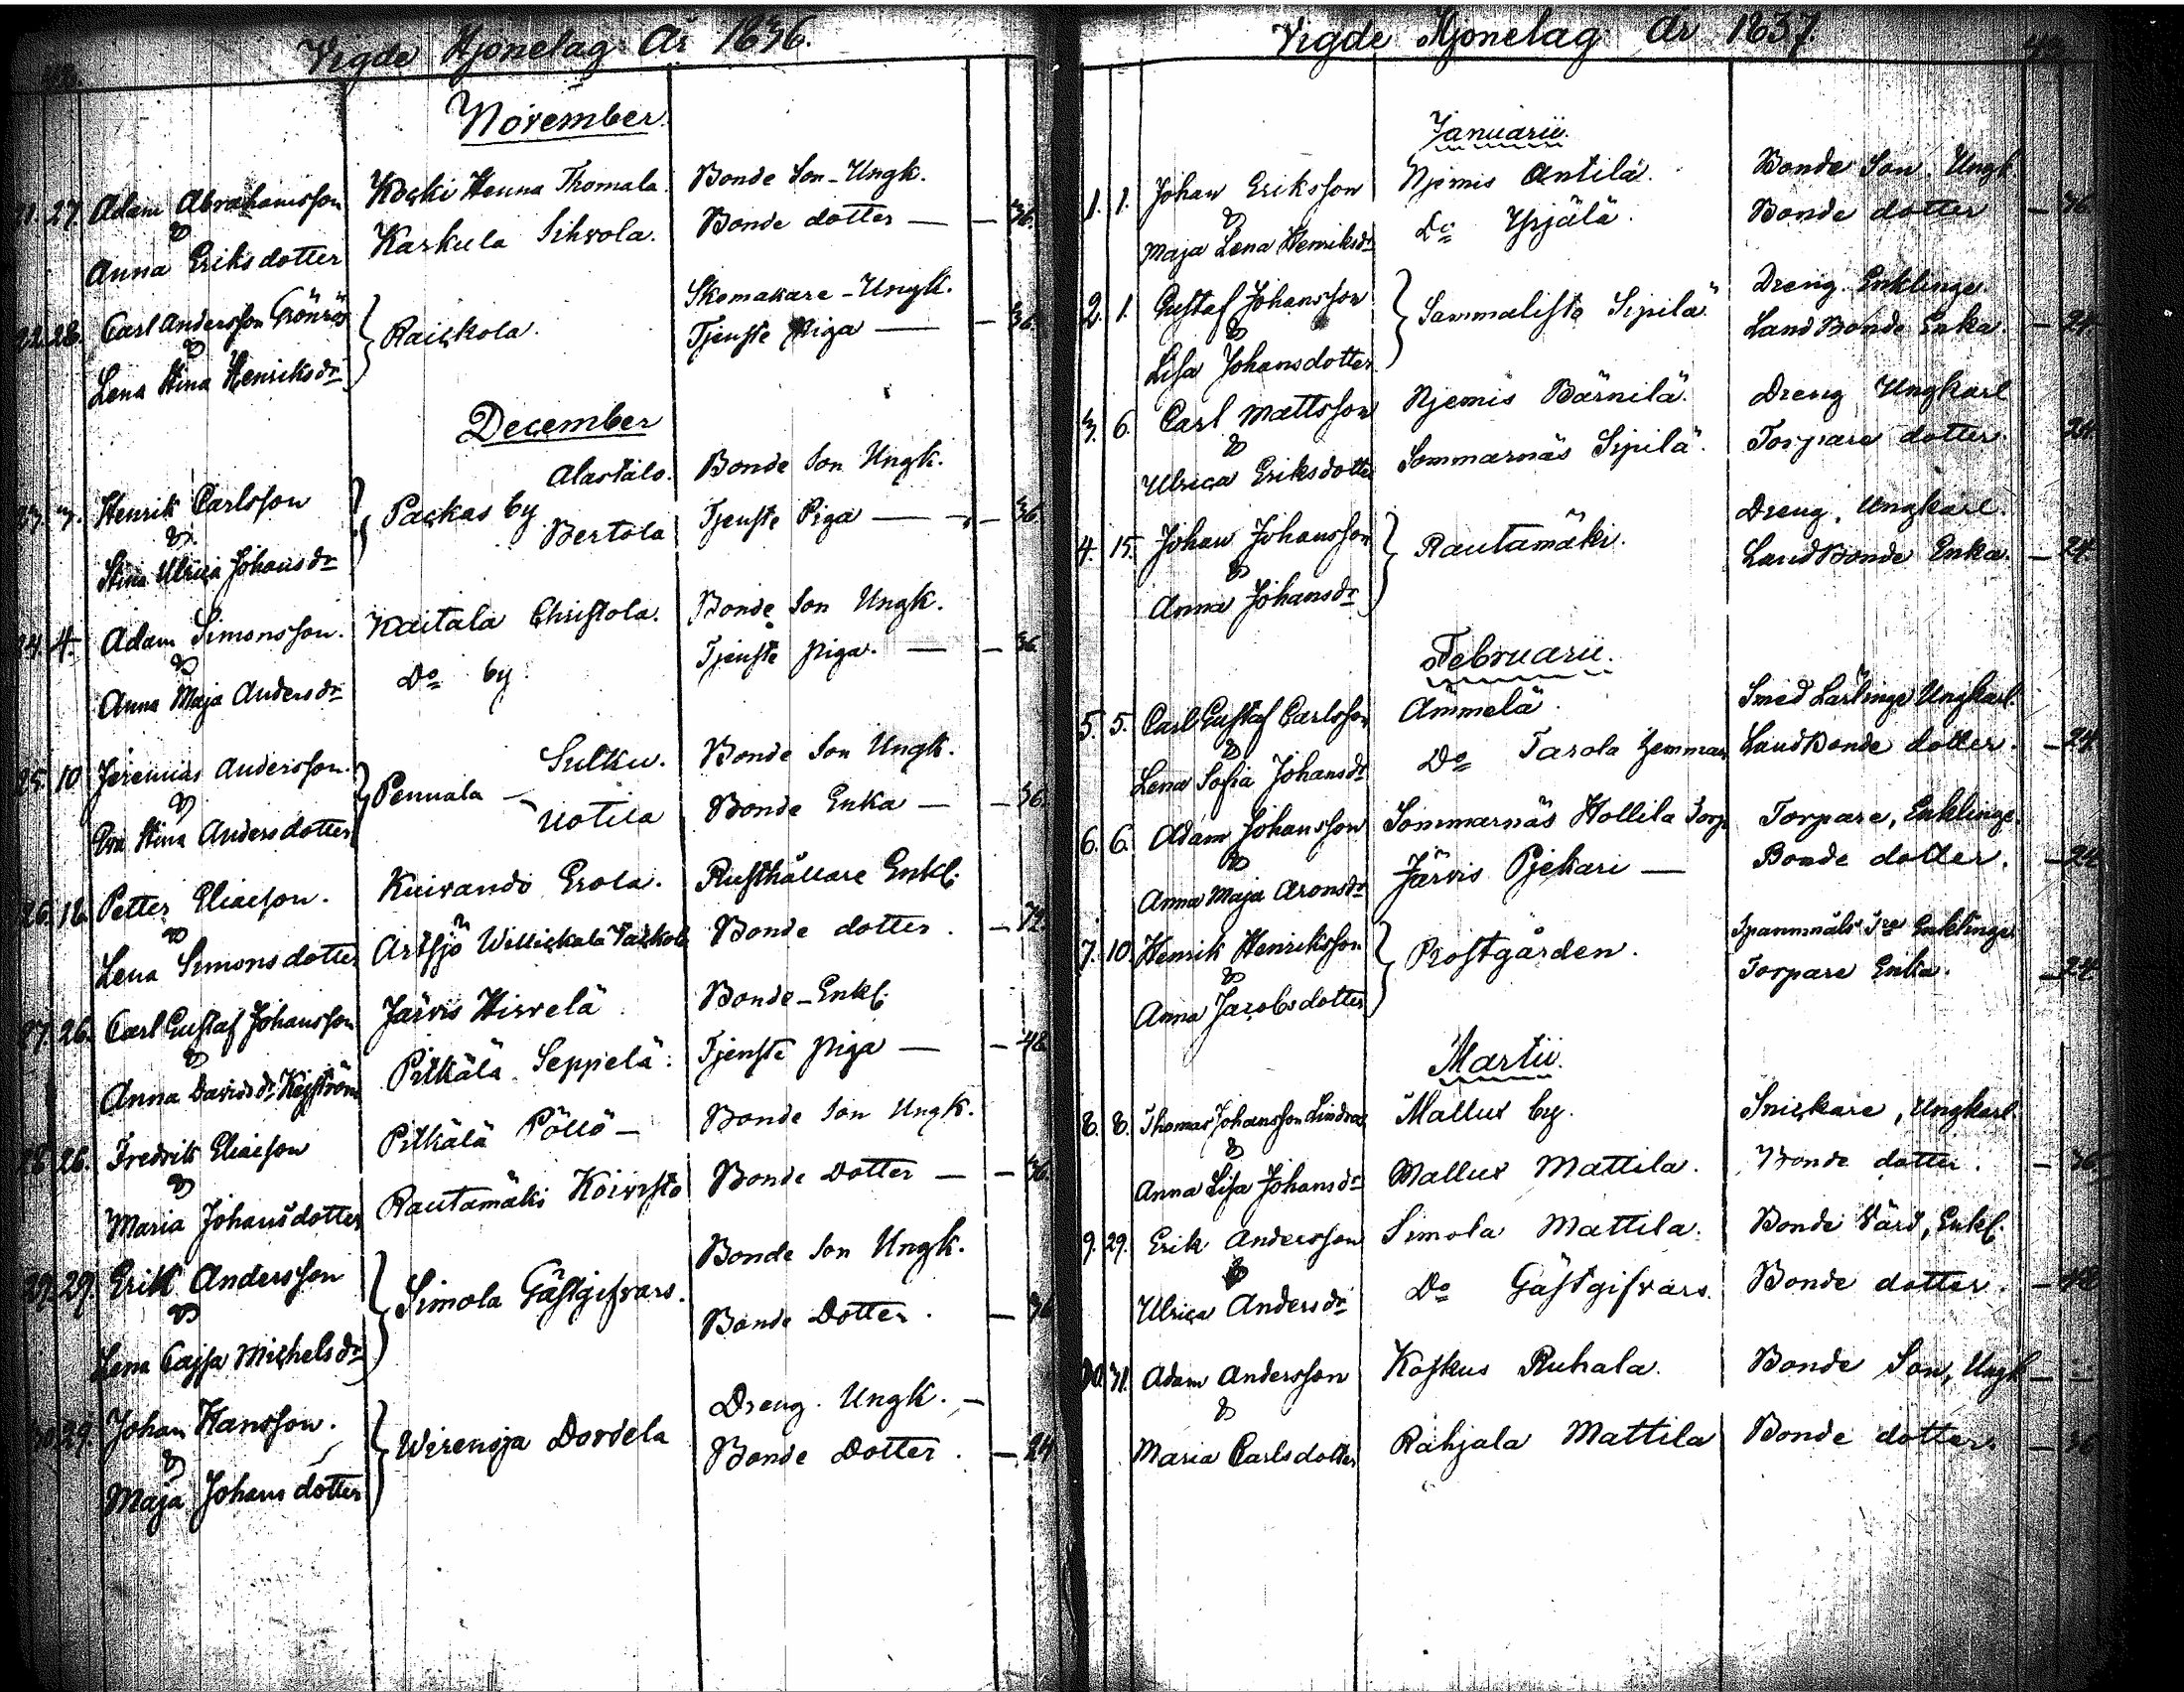 Vigde Hjonelag År 1836.
November.
21. 27. Adam Abrahamsson Koski Henna Thomala. Bonde Son - Ungk.
&
Anna Eriksdotter Karkula Sihvola. Bonde dotter — — 36.
22. 28. Carl Andersson Grönroos Raiskola. Skomakare - Ungk.
&
Lena Stina Henriksdr Tjenste Piga — — 36.
December
23. 3. Henrik Carlsson Packas by Alastalo. Bonde Son Ungk.
&
Stina Ulrica Johansdr Bertola Tjenste Piga — — 36.
24. 4. Adam Simonsson. Kaitala Christola. Bonde Son Ungk.
&
Anna Maja Andersdr Do by. Tjenste piga. — — 36
25. 10 Jeremias Andersson. Pennala — Sulku. Bonde Son Ungk.
&
Eva Stina Andersdotter Uotila Bonde Enka — — 36.
26. 18. Petter Eliasson. Kuivando Erola. Rusthållare Enkl.
&
Lena Simonsdotter Artsjö Bonde dotter. — 72.
27. 26. Carl Gustaf Johansson Järvis Hirvelä Bonde - Enkl.
&
Anna Davidsdr Pitkälä Seppelä. Tjenste piga — — 48
28. 26. Fredrik Eliasson Pitkälä Pöllö — Bonde Son Ungk.
&
Maria Johansdotter Rautamäki Koivisto Bonde Dotter — — 36.
29. 29. Erik Andersson Simola Gästgifvars. Bonde Son Ungk.
&
Lena Cajsa Michelsdr Bonde Dotter. — 36
30. 29. Johan Hansson. Wirensja Dordela Dreng. Ungk. —
&
Maja Johansdotter Bonde Dotter. — 24
Vigde Hjonelag år 1837
Januarii.
1. 1. Johan Eriksson Njemis Antilä. Bonde Son. Ungk.
&
Maja Lena Henriksdr Do Yrjälä. Bonde dotter — 36.
2. 1. Gustaf Johansson Sammalisto Sipilä. Dreng. Enklinge.
&
Lisa Johansdotter Land Bonde Enka. — 24.
3. 6. Carl Mattsson Njemis Bärnilä. Dreng Ungkarl
&
Ulrica Eriksdotter Sommarnäs Sipilä. Torpare dotter. 24.
4. 15. Johan Johansson Rautamäki. Dreng, Ungkarl.
&
Anna Johansdr Land Bonde Enka. — 24
Februarii.
5. 5. Carl Gustaf Carlsson Ämmelä. Smed Lärlinge Ungkarl.
&
Lena Sofia Johansdr Do Tarola Land Bonde dotter. — 24
6. 6. Adam Johansson Sommarnäs Hollila Torp Torpare, Enklinge.
&
Anna Maja Aronsdr Järvis Pjekari — Bonde dotter. — 24
7. 10. Henrik Henriksson Prostgården. Spannmåls Enklinge
&
Anna Jacobsdotter Torpare Enka. — 24
Martii.
8. 8. Thomas Johansson Lindroos Mallus by. Snickare, Ungkarl.
&
Anna Lisa Johansdr Mallus Mattila. Bonde dotter. — 36
9. 29. Erik Andersson Simola Mattila. Bonde Värd, Enkl.
&
Ulrica Andersdr Do Gästgifvars. Bonde dotter. — 48
10. 31. Adam Andersson Koskus Ruhala. Bonde Son, Ungk —
&
Maria Carlsdotter Rahjala Mattila Bonde dotter. — 36